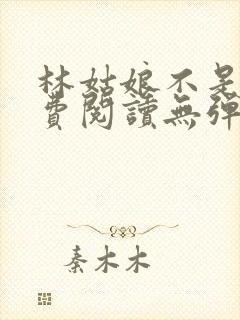 林姑娘不是
費閱讀無彈
秦木木